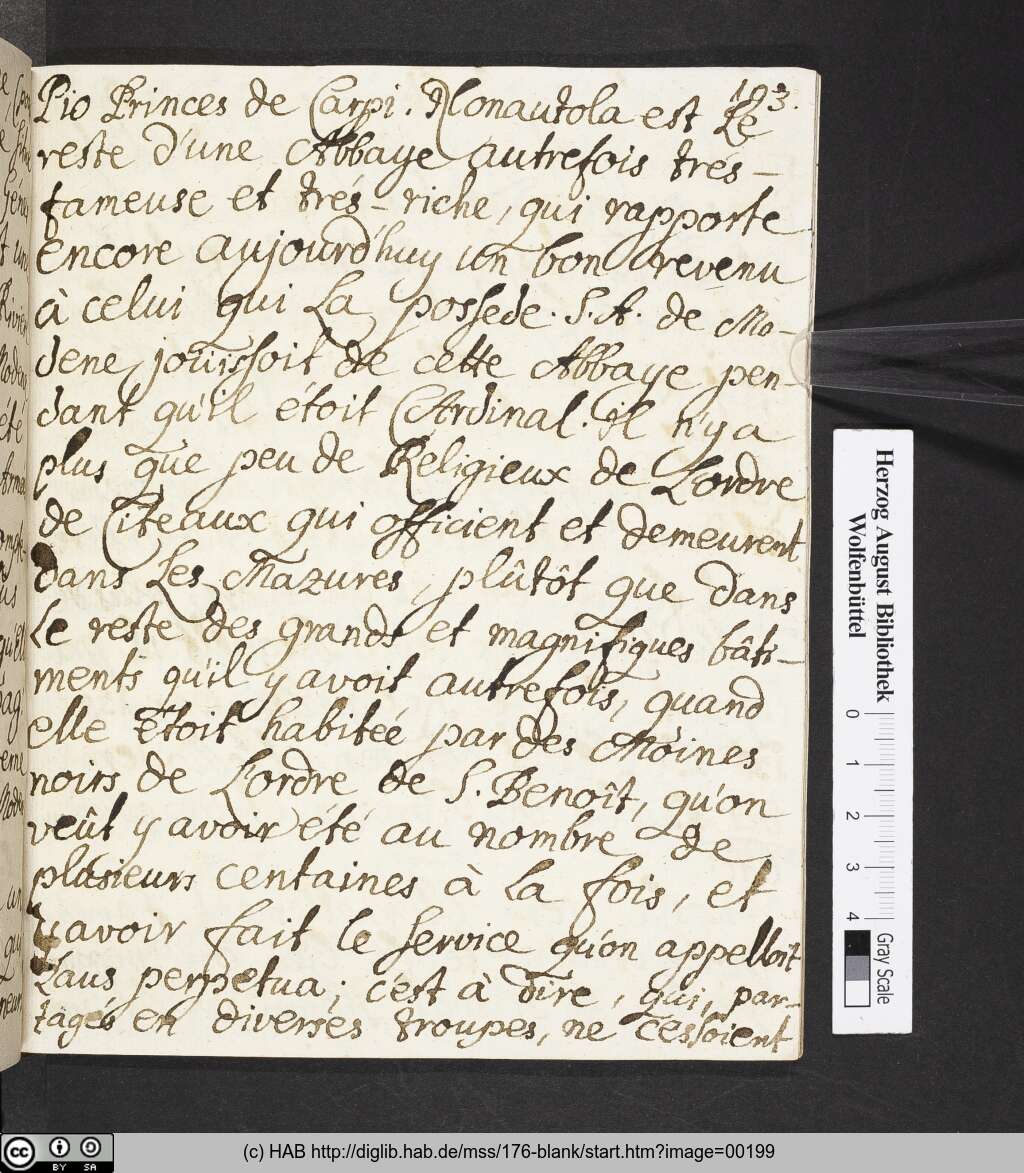 103.
Pio Princes de Carpi. Nonautola est Le
reste d'une Abbaye autrefois trés-
fameuse et trés-riche, qui rapporte
encore aujourd'huy un bon revenu
à celui qui La possede. S. A. de Mo-
dene, jouissoit de cette Abbaye pen-
dant qu'il étoit Cardinal. Il n'y a
plus que peu de Réligieux de L'ordre
de Citeaux qui officient et demeurent
dans Les Mazures, plûtôt que dans
Le reste des grands et magnifiques bâti-
ments qu'il y avoit autrefois, quand
elle étoit habitée par des Moines
noirs de L'ordre de S. Benoît, qu'on
veût y avoir été au nombre de
plusieurs centaines à La fois, et
y avoir fait le service qu'on appelloit
Laus perpetua; c'est à dire, qui, par-
tagés en diverses troupes, ne cessoient
Herzog August Bibliothek
Wolfenbüttel
0 1 2 3 4
Gray Scale
cc BY SA
(c) HAB http://diglib.hab.de/mss/176-blank/start.htm?image=00199